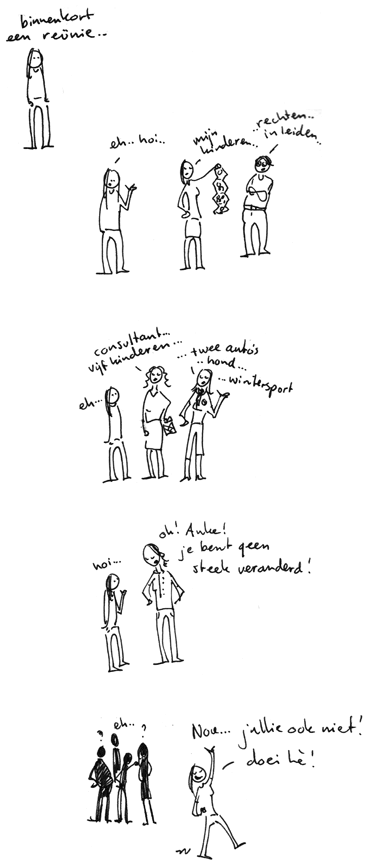 binnenkort
een reünie..
eh.. hoi...
mijn
kinderen..
..rechten..
in Leiden..
eh...
consultant...
vijf kinderen...
... twee auto's
.. hond...
... wintersport
hoi...
oh! Anke!
je bent geen
steek veranderd!
?
eh..
?
Nou... jullie ook niet!
doei hè!